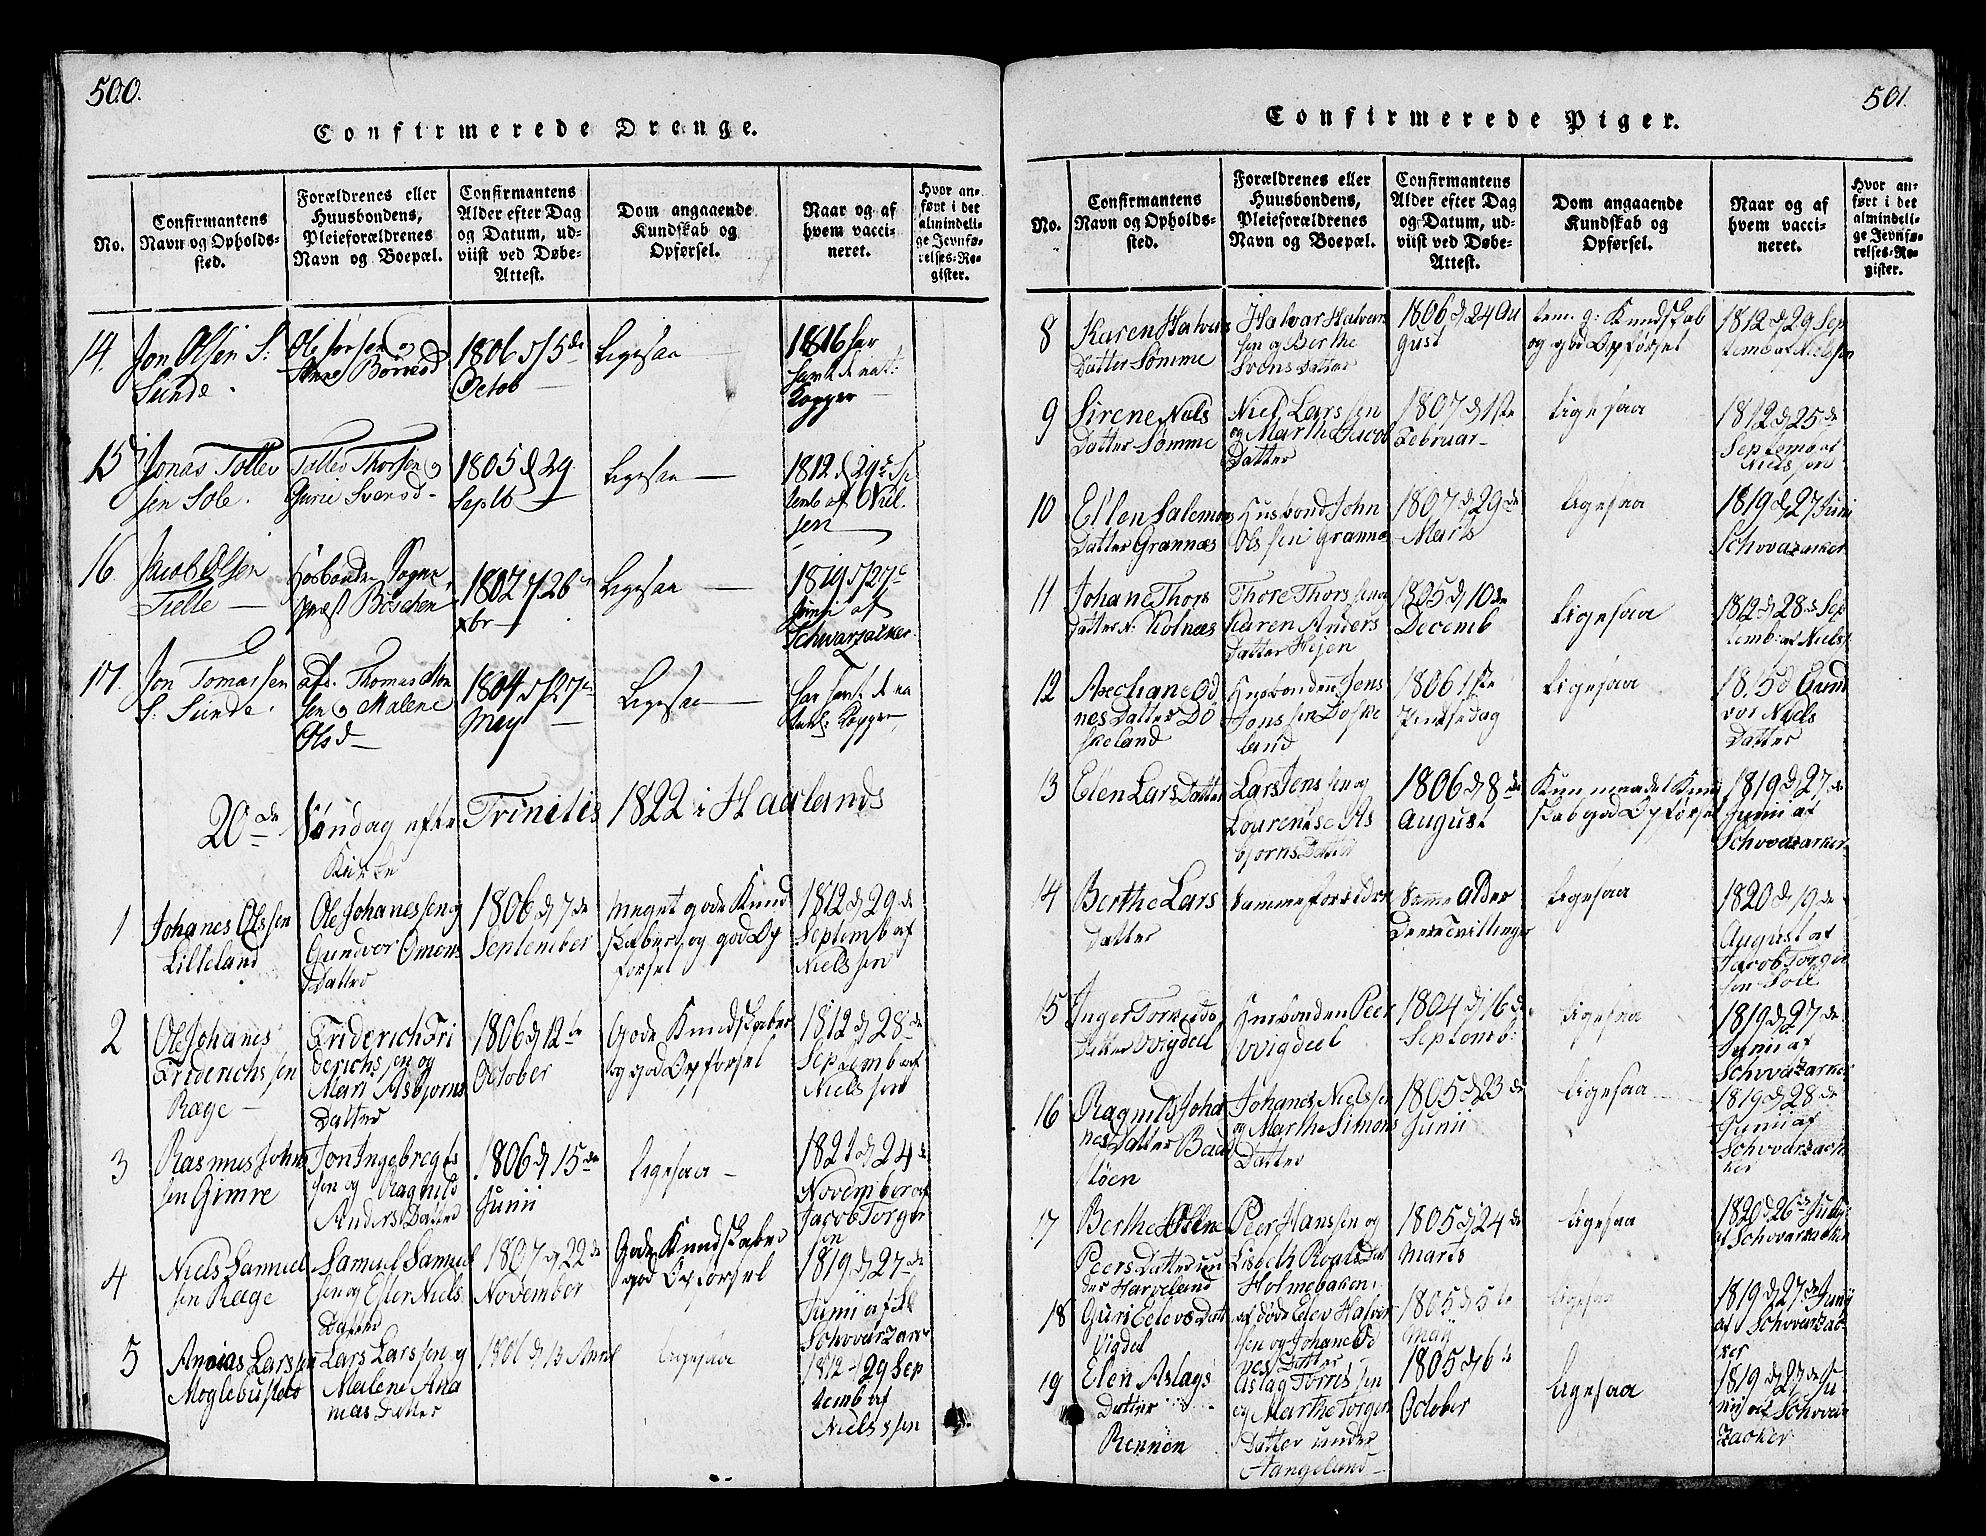 500.
Confirmerede Drenge.
No.
Confirmantens
Navn og Opholds-
sted.
Forældrenes eller
Huusbondens,
Pleieforældrenes
Navn og Boepæl.
Confirmantens
Alder efter Dag
og Datum, ud-
viist ved Døbe-
Attest.
Dom angaaende
Kundskab og
Opførsel.
Naar og af
hvem vacci-
neret.
Hvor an-
ført i det
almindeli-
ge Jevnfø-
relses-Re-
gister.
14.
Jon Olsen S:
Sunde.
Ole
1806 d 15de
Octob
Ligesaa
1816 har
havt de nat:
Kopper
15
Jonas Tollev
sen Sole.
Tollev Thorsen og
Gurie Svensd
1805 d 29
Septb
Ligesaa
1812 d 29de Sep
temb af Niel
sen
16
Jacob Olsen
Tielte
Hosbonde Sogne
præst
1807 d 26
xbr
Ligesaa
1819 d 27de
Junii af
Schwarzacker
17.
Jon Tomassen
S: Sunde.
afd. Thomas
sen og Malene
Olsd
1804 d 27de
May
Ligesaa
har havt de na
Kopper
20de Søndag efter Trinitis 1822 i Haalands
Kirke
1
Johanes Olssen
Lilleland
Ole Johanessen og
Gundvor Omons
Datter
1806 d 7de
September
meget gode Kund
skaber, og god Op
førsel
1812 d 29de
Septemb af
Nielssen
2
Ole Johanes
Friderichssen
Ræge
Friderich Fri
derichsen og
Mari Asbjørns
Datter
1806 d 12te
October
Gode Kundskaber
og god Opførsel
1812 d 28de
Septemb af
Nielssen
3
Rasmus John
sen Gimre
Jon Ingebregts
sen og Ragnild
Anders Datter
1806 d 15de
Junii
Ligesaa
1821 d 24de
November af
Jacob Torger
sen
4
Niels Samuel
sen Ræge
Samuel Samuel
sen og Ester Niels
Datter
1807 d 22de
November
Gode Kundskaber
god Opførsel
1819 d 27de
Junii af
Schwarzacker
5
Ananias Larssen
Møglebusteds
Lars Larssen og
Malene Ana
nias Datter
1806 d 13 April
Ligesaa
1812 d 29 Sep
temb af
Nielssen
501.
Confirmerede Piger.
No.
Confirmantens
Navn og Opholds-
sted.
Forældrenes eller
Huusbondens,
Pleieforældrenes
Navn og Boepæl.
Confirmantens
Alder efter Dag
og Datum, ud-
viist ved Døbe-
Attest.
Dom angaaende
Kundskab og
Opførsel.
Naar og af
hvem vacci-
neret.
Hvor an-
ført i det
almindeli-
ge Jevnfø-
relses-Re-
gister.
8
Karen Halvors
Datter Sømme
Halvor Halvors
sen og Berthe
Svens Datter
1806 d 24 Au
gust
tem. g: Kundskab
og god Opførsel
1812 d 29 Sep
temb af Nielsen
9
Sirene Niels
Datter Sømme
Niels Larssen
og Marthe Jacob
Datter
1807 d 1ste
Februar
Ligesaa
1812 d 25de
Septemb af
Nielssen
10
Ellen Salemons
Datter Grannæs
Husbond John
Olssen Grannæs
1807 d 29de
Marts
Ligesaa
1819 d 27 Junii
Schvvazarker
11
Johane Thors
Datter N. Kolnæs
Thore Thorssen og
Karen Anders
Datter
1805 d 10de
Decemb
Ligesaa
1812 d 28de Sep
temb: af Niels:
12
Axeliane Od
nes Datter Dø
skeland
Husbonden Jens
Jonssen Døske
land
1806 1ste
Pindsedag
Ligesaa
1815 d Gund
vor Niels
Datter
13
Elen Lars Datter
Lars Jenssen og
Lourentse As
bjorns Datter
1806 d 8de
August
Kun maadel Kund
skab god Opførsel
1819 d 27de
Junii af
Schvvazarker
14
Berthe Lars
Datter
Samme Forældre
Samme alder
Deere Tvillinger
Ligesaa
1820 d 19de
August af
Jacob Torger
sen Sole
15
Inger Torkilds
Datter Vvigdeel
Husbonden Peer
Vvigdeel
1804 d 16de
Septemb:
Ligesaa
1819 d 27de
Junii af
Schvvazarker
16
Ragnild Joha
nes Datter Baad
støen
Johanes Nielssen
og Marthe Simons
Datter
1805 d 23de
Junii
Ligesaa
1819 d 28de
Junii af
Schvvarzack
ker
17
Berthe
Peers Datter un
der Harveland
Peer Hanssen og
Lisbeth Roalds Dat
Holmebaken.
1805 d 24de
Marts
Ligesaa
1820 d 26de July
af Schvvarzacker
18
Guri Elevs Datt
Vigdel
af døde Elev Halvor
sen og Johane Od
nes Datter
1805 d 5te
Maij
Ligesaa
1819 d 27de Junij
af Schvvarzac
ker
19
Elen Aslags
Datter
Rennøn
Aslag Torrissen
og Marthe Torger
Datter under
Hangeland
1805 d 6te
October
Ligesaa
1819 d 27de Ju
nij af Schvvar
zacker